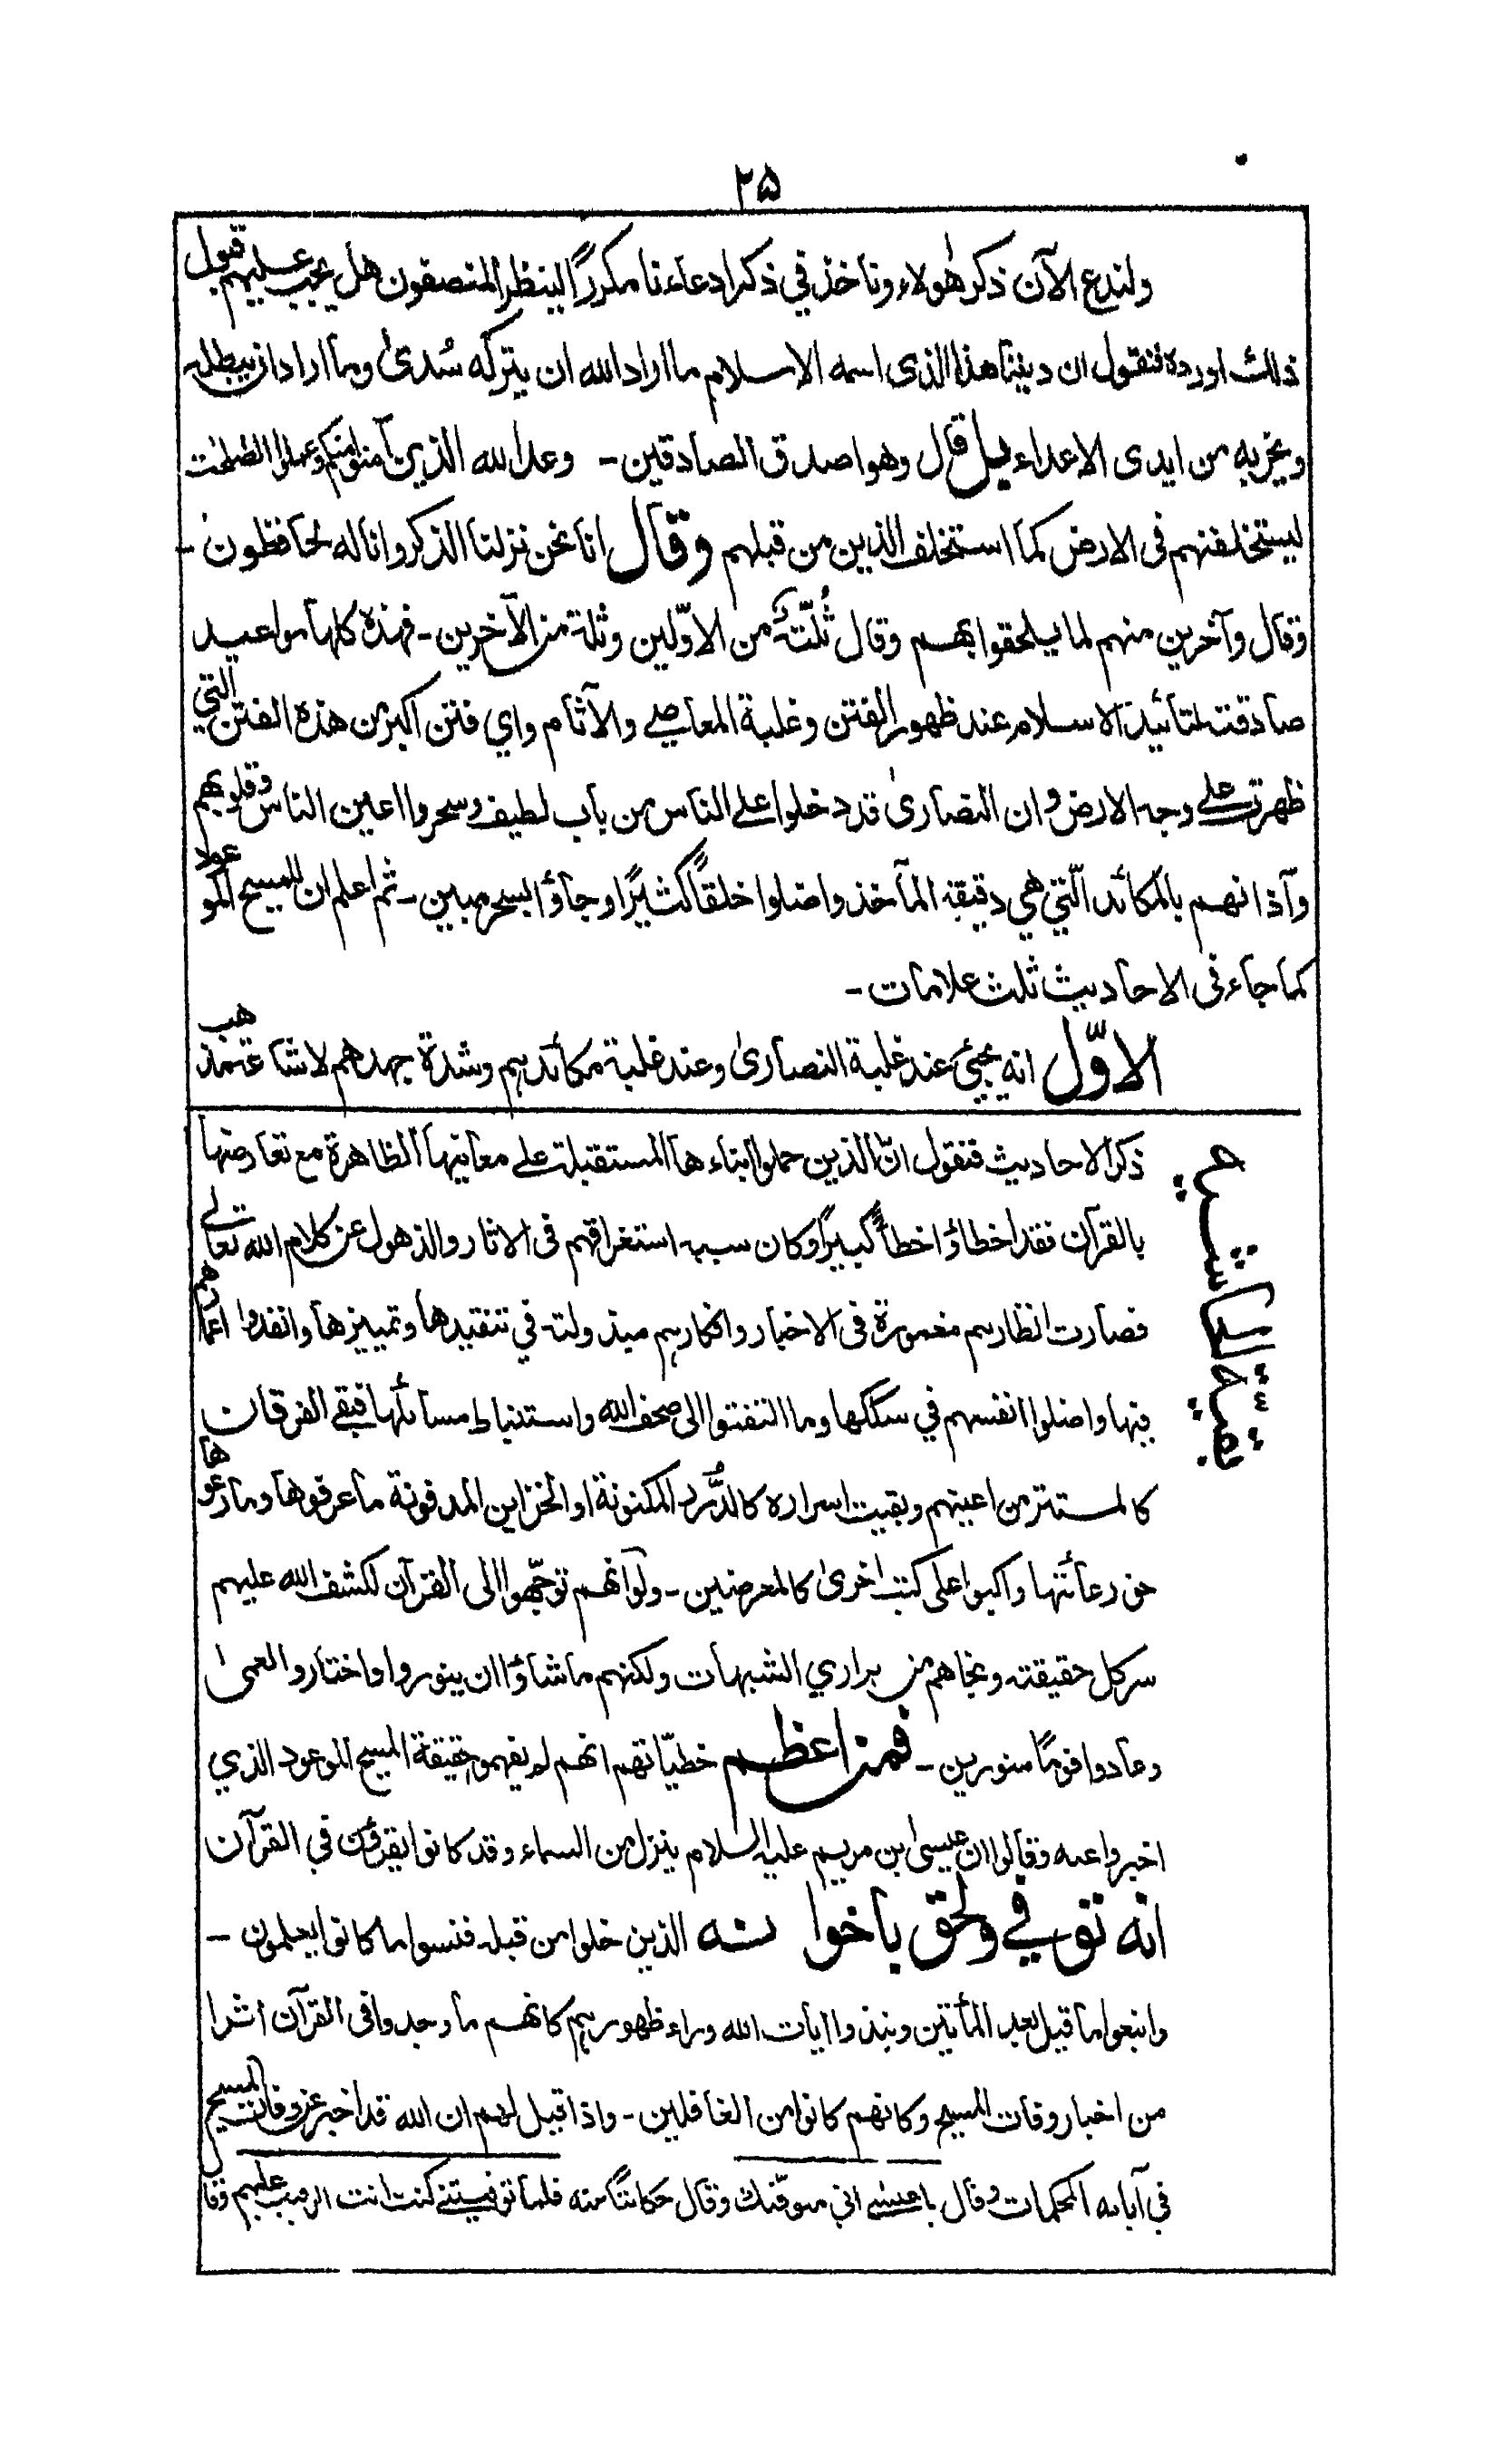 ۲۵
ولندع الآن ذكر هٰولاء ونأخذ في ذكر ادعاءنا مكررًا لينظر المنصفون هل يجب عليهم قبول
ذلك او رده فنقول ان ديننا هذا الذى اسمه الاسلام ما اراد الله ان يتركه سُدىٰ وما اراد ان يبطله
ويخربه من ايدى الاعداء بل قال وهو اصدق الصادقين - وعد الله الذين آمنوا منكم وعملوا الصّٰلحٰت
ليستخلفنهم فى الارض كما استخلف الذين من قبلهم وقال انا نحن نزلنا الذكر وانا له لحافظون -
وقال وآخرين منهم لما يلحقوا بهم وقال ثُلّةٌ من الاوّلين وثلة من الآخرين - فهذه كلها مواعيد
صادقة لتائيد الاسلام عند ظهور الفتن وغلبة المعاصي والآثام واي فتن اكبر من هذه الفتن التي
ظهرت على وجه الارض وان النصارىٰ قد دخلوا على الناس من باب لطيف وسحروا اعين الناس وقلوبهم
وآذانهم بالمكائد الّتي هي دقيقة المآخذ واضلوا خلقًا كثيرًا وجاؤا بسحر مبين - ثم اعلم ان للمسيح الموعود
كما جاء فى الاحاديث ثلث علامات -
الاوّل انه يجيئ عند غلبة النصارىٰ وعند غلبة مكائدهم وشدة جهدهم لاشاعة مذهب
بقيّة الحاشية
ذكر الاحاديث فنقول انّ الذين حملوا انباءها المستقبلة على معانيها الظاهرة مع تعارضها
بالقرآن فقد اخطاؤا خطأً كبيرًا وكان سببه استغراقهم فى الاثار والذهول عن كلام الله تعالى
فصارت انظارهم مغمورة فى الاخبار وافكارهم مبذولة في تنقيدها وتمييزها وانفدوا اعمارهم
فيها واضلوا انفسهم في سككها وما التفتوا الى صحف الله واستنباط مسائلها فبقي الفرقان
كالمستتر من اعينهم وبقيت اسراره كالدُّرر المكنونة او الخزاين المدفونة ما عرفوها وما رعوها
حق رعايتها واكبوا على كتب اخرىٰ كالمعرضين - ولو انهم توجّهوا الى القرآن لكشف الله عليهم
سر كل حقيقة ونجاهم من براري الشبهات ولكنهم ما شاؤا ان ينوروا واختاروا العمىٰ
وعادوا قومًا منورين - فمن اعظم خطيّاتهم انهم لم يفهموا حقيقة المسيح الموعود الذي
اخبروا عنه وقالوا ان عيسىٰ بن مريم عليه السلام ينزل من السماء وقد كانوا يقرؤن في القرآن
انه توفي ولحق باخوانه الذين خلوا من قبله فنسوا ما كانوا يعلمون -
واتبعوا ما قيل بعد المأتين ونبذوا ايات الله وراء ظهورهم كانهم ما وجدوا فى القرآن اثرا
من اخبار وفات المسيح وكانهم كانوا من الغافلين - واذا قيل لهم ان الله قد اخبر عن وفات المسيح
في آياته المحكمات وقال يا عيسى اني متوفيك وقال حكايتًا عنه فلما توفيتني كنت انت الرقيب عليهم وقا